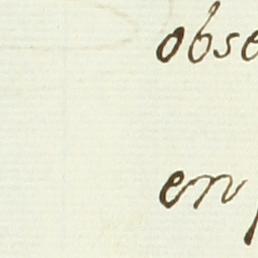 obse
en